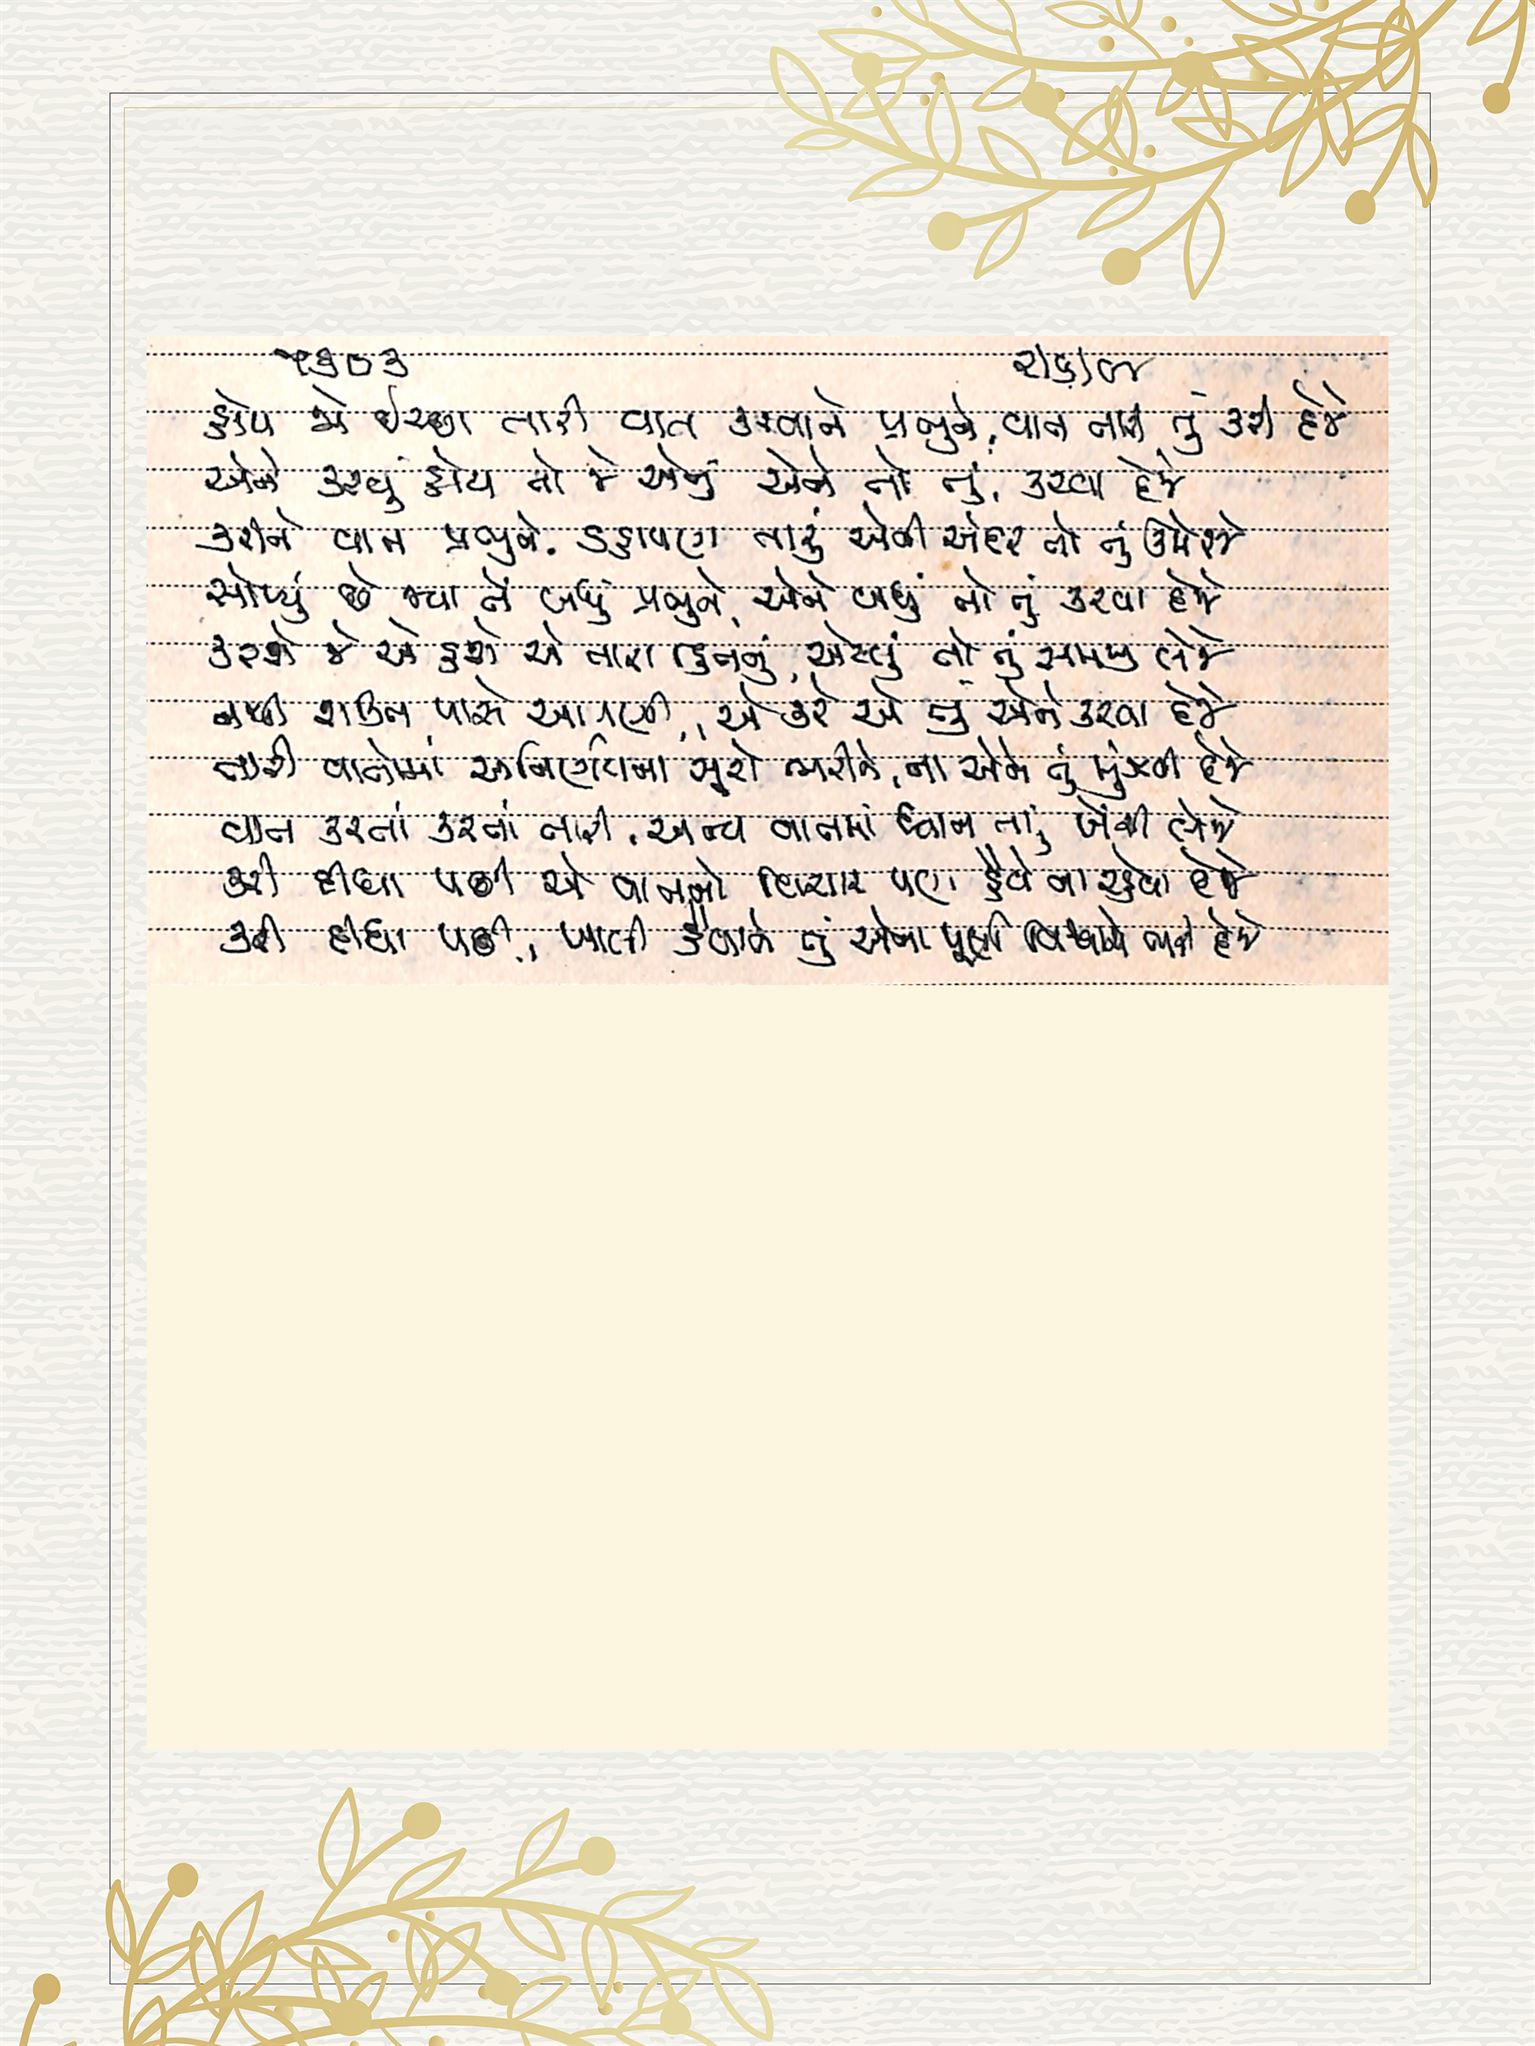 હોય જો ઇચ્છા તારી વાત કરવાને પ્રભુને, વાત તારી તું કરી દેજે
એને કરવું હોય તો જે એનું એને તો તું, કરવા દેજે
કરીને વાત પ્રભુને, ડહાપણ તારું એની અંદર તો તું ઉમેરજે
સોંપ્યું છે જ્યાં તેં બધું પ્રભુને, એને બધું તો તું કરવા દેજે
કરશે જે એ હશે એ તારા હિતનું, એટલું તો તું સમજી લેજે
નથી શક્તિ પાસે આપણી, એ કરે એ તું એને કરવા દેજે
તારી વાતોમાં અનિર્ણીતના સૂરો ભરીને, ના એને તું મુંઝવી દેજે
વાત કરતાં કરતાં તારી, અન્ય વાતમાં ધ્યાન તારું, ખેંચી લેજે
કરી દીધા પછી એ વાતનો વિચાર પણ હૈયે ના રહેવા દેજે
કરી દીધા પછી, ખાલી હૈયાને તું એના પૂર્ણ વિશ્વાસે ભરી દેજે